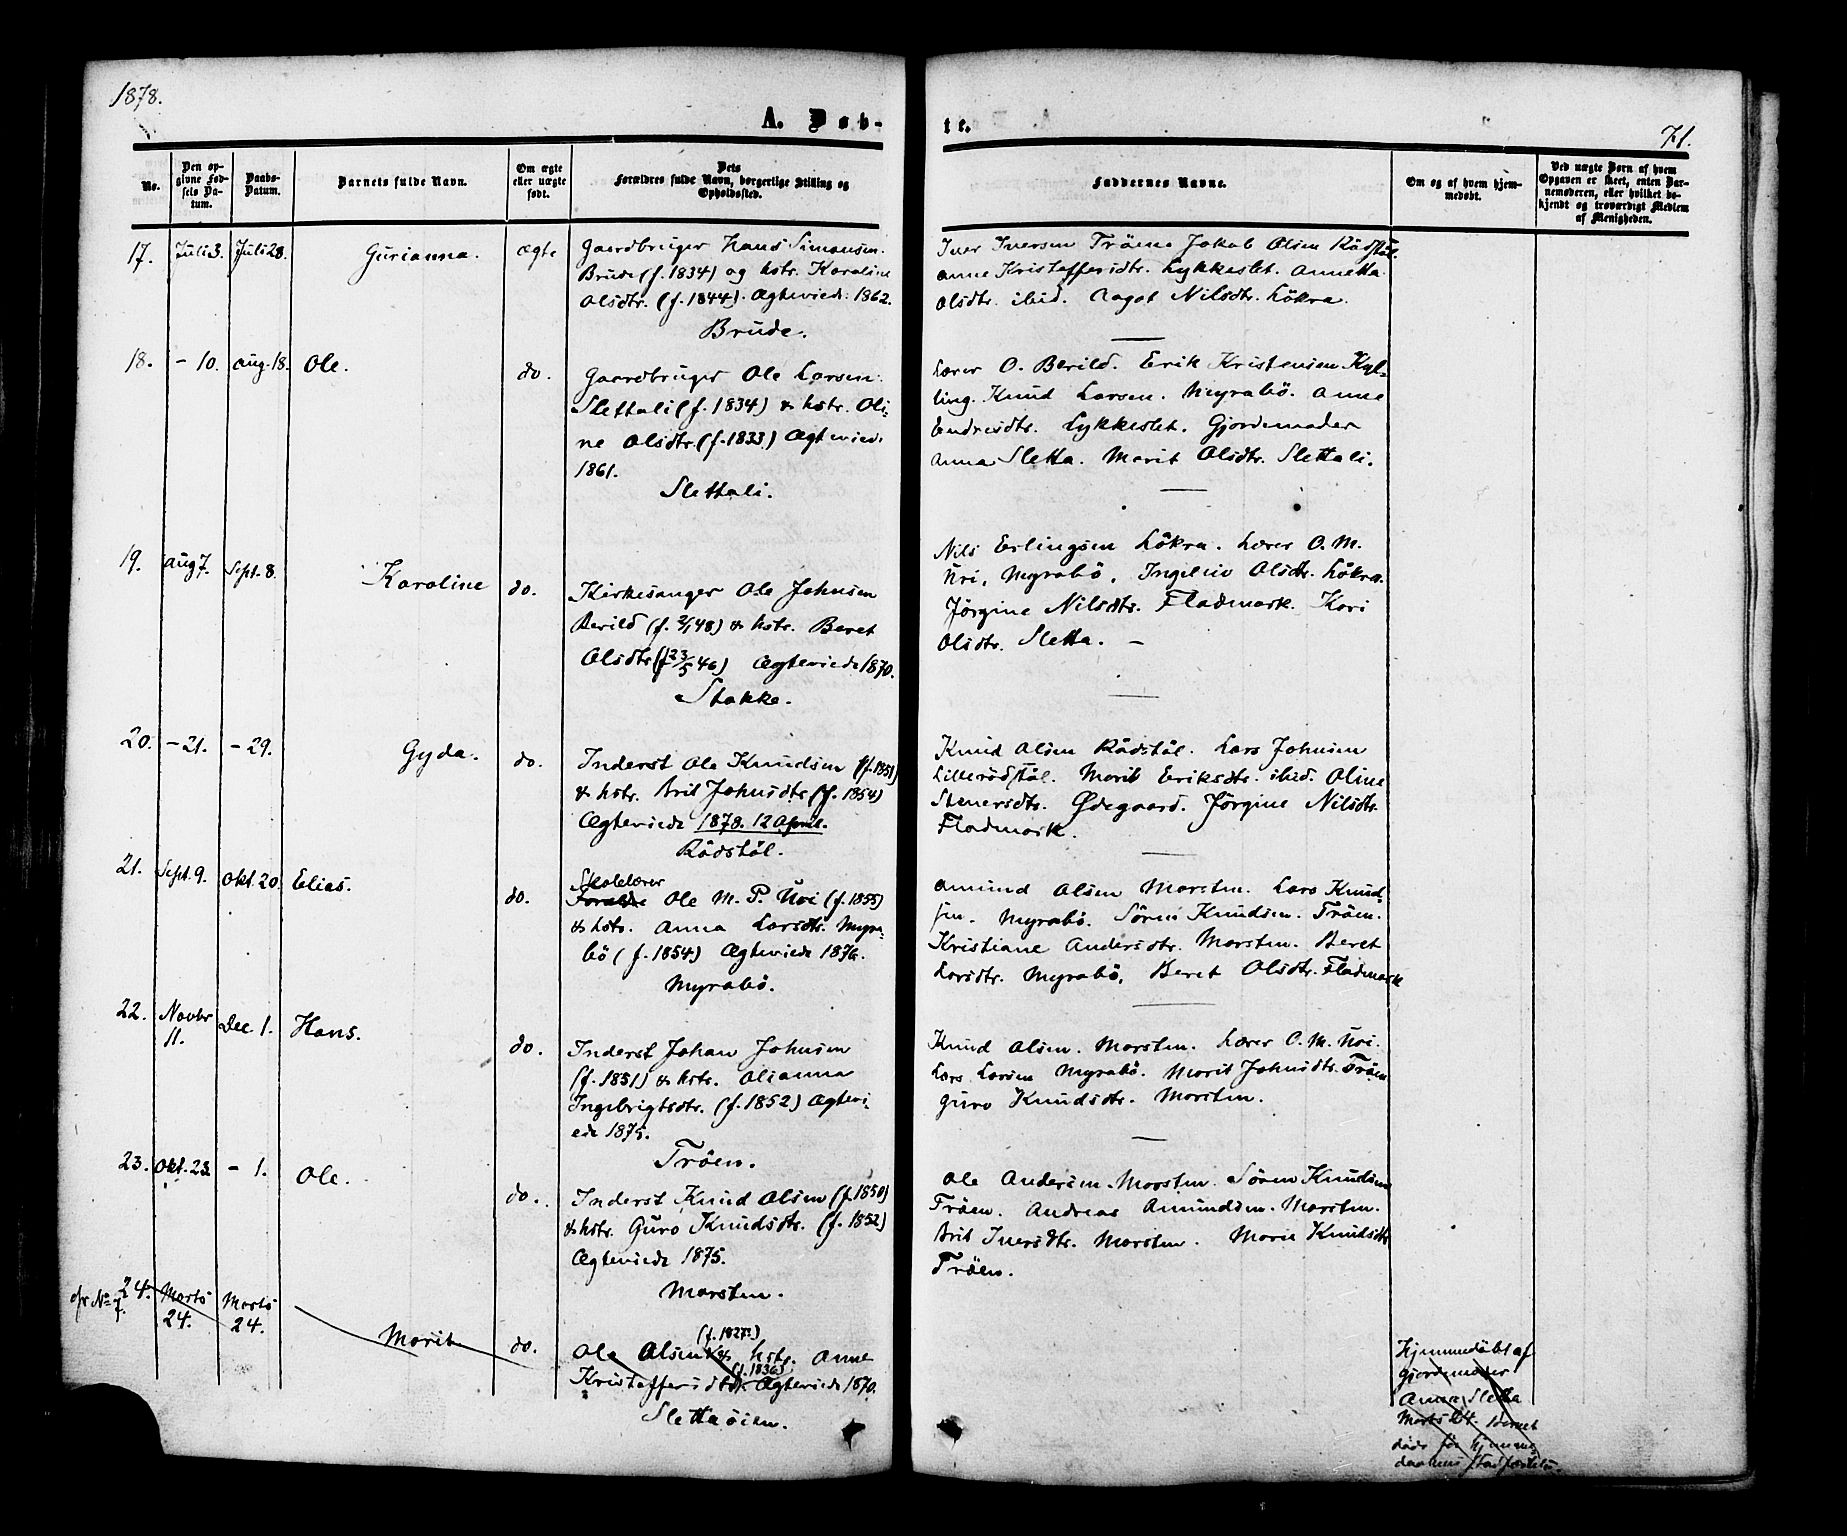 1878.
A. Døb-
te.
71.
No.
Den op-
givne Fød-
sels Da-
tum.
Daabs-
Datum.
Barnets fulde Navn.
Om ægte
eller uægte
født.
Dets
Forældres fulde Navn, borgerlige Stilling og
Opholdssted.
Faddernes Navne.
Om og af hvem hjem-
medøbt.
Ved uægte Børn af hvem
Opgaven er skeet, enten Bar-
nemoderen, eller hvilket be-
kjendt og troværdigt Medlem
af Menigheden.
17. Juli 3. Juli 28. Gurianna. ægte
Gaardbruger Hans Simonsen
Brude (f. 1834) og hstr. Karoline
Olsdtr. (f. 1844). Ægteviede 1862.
Brude.
Iver Iversen Tröen. Jakob Olsen Rödstöl.
Anne Kristoffersdtr. Lykkeslet. Annetta
Olsdtr. ibid. Ragot Nilsdtr. Lökra.
18. - 10. Aug. 18. Ole. do.
Gaardbruger Ole Larsen
Slettali (f. 1834) & hstr. Oli-
ne Olsdtr. (f. 1833) Ægteviede
1861.
Slettali.
Lærer O. Berild. Erik Kristensen Kyl-
ling. Knud Larsen. Myrabö. Anne
Endresdtr. Lykkeslet. Gjordemoder
Anna Sletta. Marit Olsdtr. Slettali.
19. Aug 7. Sept. 8. Karoline do.
Kirkesanger Ole Johnsen
Berild (f. 2/1 48) & hstr. Beret
Olsdtr. (f. 23/5 46) Ægteviede 1870.
Stokke.
Nils Erlingsen Lökra. Lærer O. M.
Uri, Myrabö. Ingeliv Olsdtr. Lökra.
Jörgine Nilsdtr. Fladmark. Kari
Olsdtr. Sletta. -
20. - 21. - 29. Gyda. do.
Inderst Ole Knudsen (f. 1851)
& hstr. Brit Johnsdtr. (f. 1854)
Ægteviede 1878. 12 April.
Rödstöl.
Knud Olsen Rödstöl. Lars Johnsen
Lillerödstöl. Marit Eriksdtr. ibid. Oline
Stenersdtr. Ødegaard. Jörgine Nilsdtr.
Fladmark.
21. Sept. 9. Okt. 20. Elias. do.
Skolelærer
Forældre Ole M. P. Uri (f. 1855)
& hstr. Anna Larsdtr. Myra-
bö (f. 1854) Ægteviede 1876.
Myrabö.
Amund Olsen Marsten. Lars Knud-
sen. Myrabö. Sören Knudsen. Tröen.
Kristiane Andersdtr. Marsten. Beret
Larsdtr. Myrabö, Beret Olsdtr. Fladmark
22. Novbr 11. Dec. 1. Hans. do.
Inderst Johan Johnsen
(f. 1851) & hstr. Olianna
Ingebrigtsdtr. (f. 1852) Ægtevi-
ede 1875.
Tröen.
Knud Olsen. Marsten. Lærer O. M. Uri.
Lars Larsen Myrabö. Marit Johnsdtr. Tröen
Guro Knudsdtr. Marsten.
23. Okt. 23 - 1. Ole. do.
Inderst Knud Olsen (f. 1850)
& hstr. Guro Knudsdtr. (f. 1852)
Ægteviede 1875.
Marsten.
Ole Andersen. Marsten. Sören Knudsen
Tröen. Andreas Amundsen. Marsten.
Brit Iversdtr. Marsten. Marie Knudsdtr.
Tröen.
cfr No 7. 24. Marts 24. Marts 24. Marit do.
(f. 1827)
Ole Olsen & hstr. Anne
(f. 1836)
Kristoffersdtr. Ægteviede 1870.
Slettaöien.
Hjemmedöbt af
Gjordemoder
Anna Sletta
Marts 24. Barnet
döde för Hjemme-
daabens Stadfæstelse.